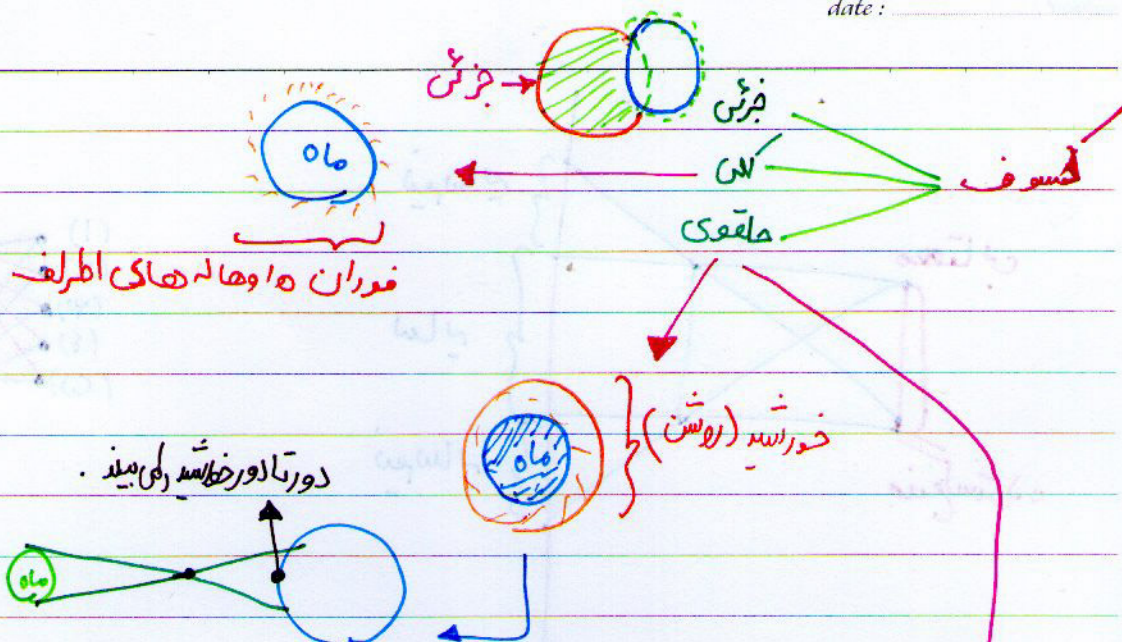 date :
جزئی
جزئی
ماه
کلی
کسوف
حلقوی
فوران ها وهاله های اطراف
خورشید (روشن)
ماه
دورتادور خورشید رامی بیند .
ماه